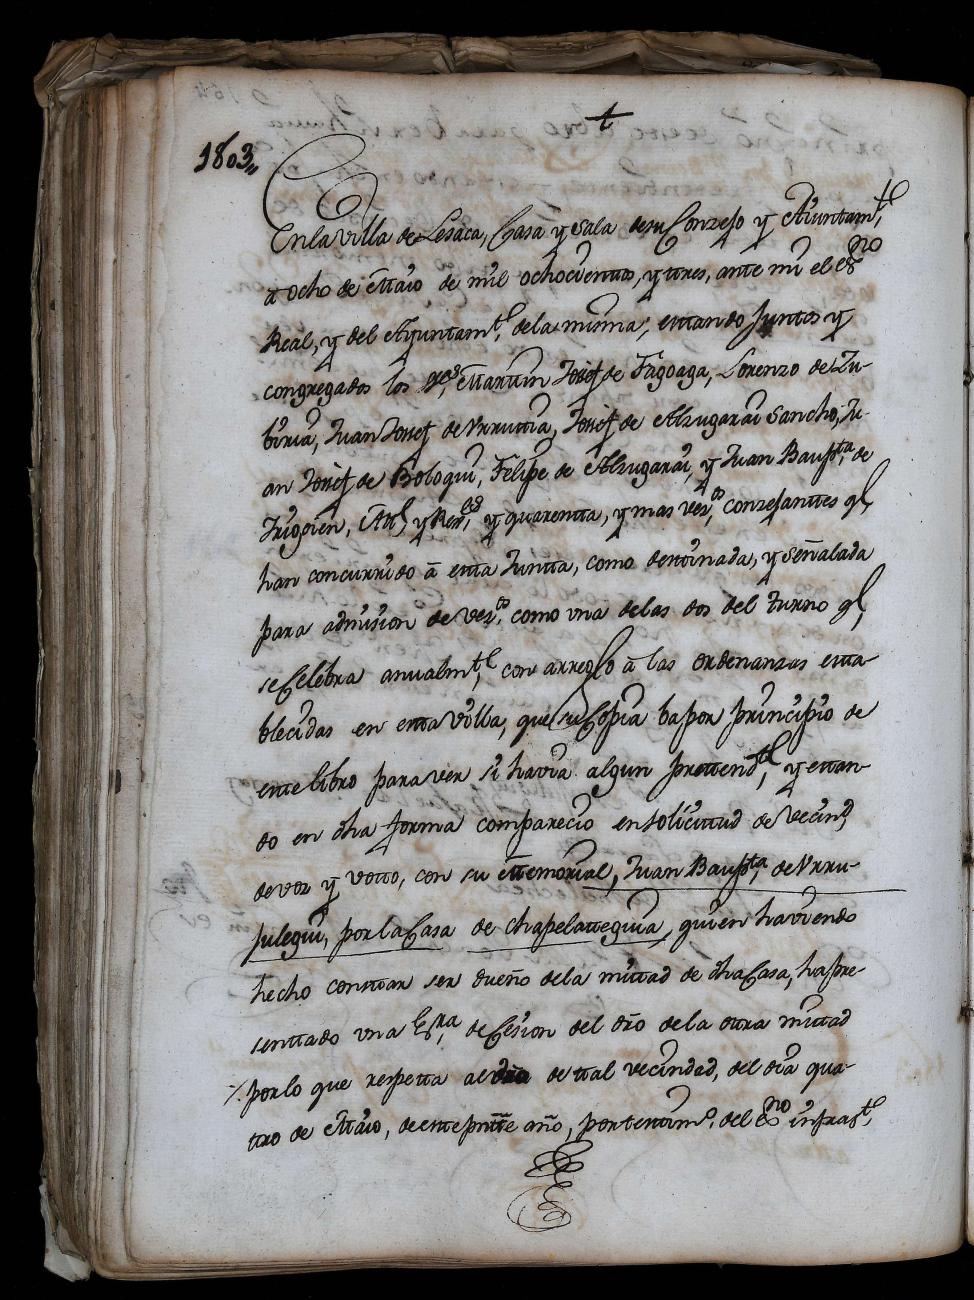 t
1803,,
En la Villa de Lesaca, Casa y Sala de su Conzejo y Aiuntam.te
à ocho de Maio de mil ochocientos, y tres, ante mi el es.no
Real, y del Ayuntam.to, de la misma, estando Juntos y
congregados los SS.es Martin Josef de Fagoaga, Lorenzo de Zu-
biria, Juan Josef de Urrutia, Josef de Alzugarai Sancho, Ju-
an Josef de Boloqui, Felipe de Alzugarai, y Juan Baup.ta de
Irigoien, Al.e y Rex.es, y quarenta, y mas vez.os conzejantes q.e
han concurrido à esta Junta, como destinada, y señalada
para admision de vez.os como una de las dos del turno q.e
se Celebra anualm.te, con arreglo à las ordenanzas esta-
blecidas en esta Villa, que su Copia ba por principio de
este libro para ver si havia algun prettend.te, y estan-
do en dha forma comparecio en solicitud de Vecind.d
de voz y votto, con su Memorial, Juan Baup.ta de Urru-
julegui, por la Casa de Chapelatteguia, quien haviendo
hecho constar ser dueño de la mitad de dha Casa, ha pre-
sentado una Es.ra de Cesion del dro de la otra mitad
por lo que respetta al dro de tal vecindad, del dia qua-
tro de Maio, de este pntte año, por testim.o del es.no infras.to